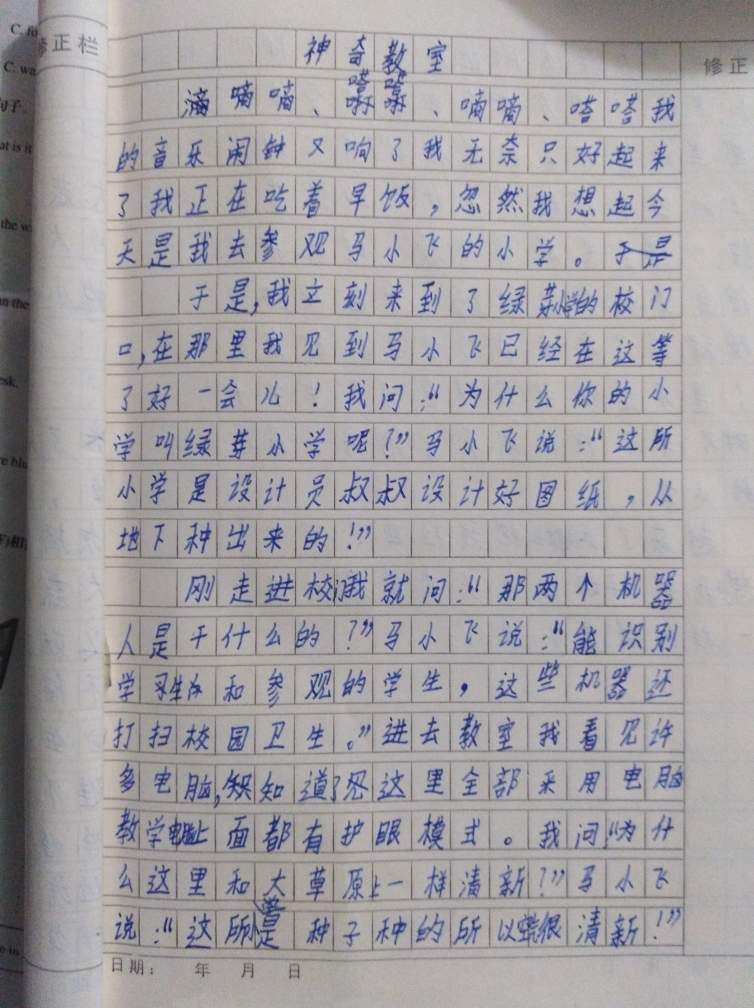 C. fo
修正栏
修正
C. wa
神奇教室
滴嘀嘀、嗒嗒、嘀嘀、嗒嗒我
的音乐闹钟又响了我无奈只好起来
了我正在吃着早饭，忽然我想起今
天是我去参观马小飞的小学。
于是,我立刻来到了绿芽小学的校门
口,在那里我见到马小飞已经在这等
了好一会儿！我问:“为什么你的小
学叫绿芽小学呢？”马小飞说:“这所
小学是设计员叔叔设计好图纸，从
地下种出来的！”
刚走进校门我就问:“那两个机器
人是干什么的？”马小飞说:“能识别
学习生的和参观的学生，这些机器还
打扫校园卫生。”进去教室我看见许
多电脑,知道了这里全部采用电脑
教学电脑上面都有护眼模式。我问“为什
么这里和大草原上一样清新？”马小飞
说:“这所是种子种的所以就很清新！”
日期： 年 月 日